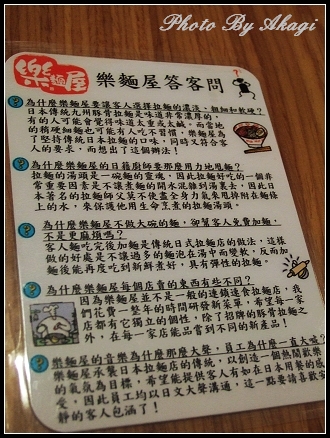 Photo By Akagi
樂麵屋
樂麵屋答客問
為什麼樂麵屋要讓客人選擇拉麵的濃淡、粗細和軟硬?
日本傳統九州豚骨拉麵是味道非常濃厚的,
有的人可能會覺得味道太重或太鹹。而當地
的稍硬細麵也可能有人吃不習慣,樂麵屋為
了堅持傳統日本拉麵的口味,同時又符合客
人的要求,而想出了這個辦法!
為什麼樂麵屋的日籍廚師要那麼用力地甩麵?
拉麵的湯頭是一碗麵的靈魂,因此拉麵好吃的一個非
常重要因素是不讓煮麵的開水混雜到湯裏去,因此日
本著名的拉麵師父莫不使盡全身力氣來甩掉附在麵條
上的水,來保護他用生命烹煮的拉麵湯頭。
為什麼樂麵屋不做大碗的麵,卻幫客人免費加麵,
不是更麻煩嗎?
客人麵吃完後加麵是傳統日式拉麵店的做法,這樣
做的好處是不讓過多的麵泡在湯中而變軟,反而加
麵後能再度吃到新鮮煮好,具有彈性的拉麵。
為什麼樂麵屋每個店賣的東西有些不同?
因為樂麵屋並不是一般的連鎖速食拉麵店,我
們花費一整年的時間研發新菜單,希望每一家
店都有它獨立的個性,除了招牌的豚骨拉麵之
外,在每一家店能品嘗到不同的新產品!
為什麼樂麵屋的音樂為什麼那麼大聲,員工為什麼一直大喊?
樂麵屋承襲日本拉麵店的傳統,以創造一個熱鬧歡樂
的氣氛為目標,希望能提供客人有如在日本用餐的感
受,因此員工均以日文大聲溝通,這一點要請喜歡安
靜的客人包涵了!